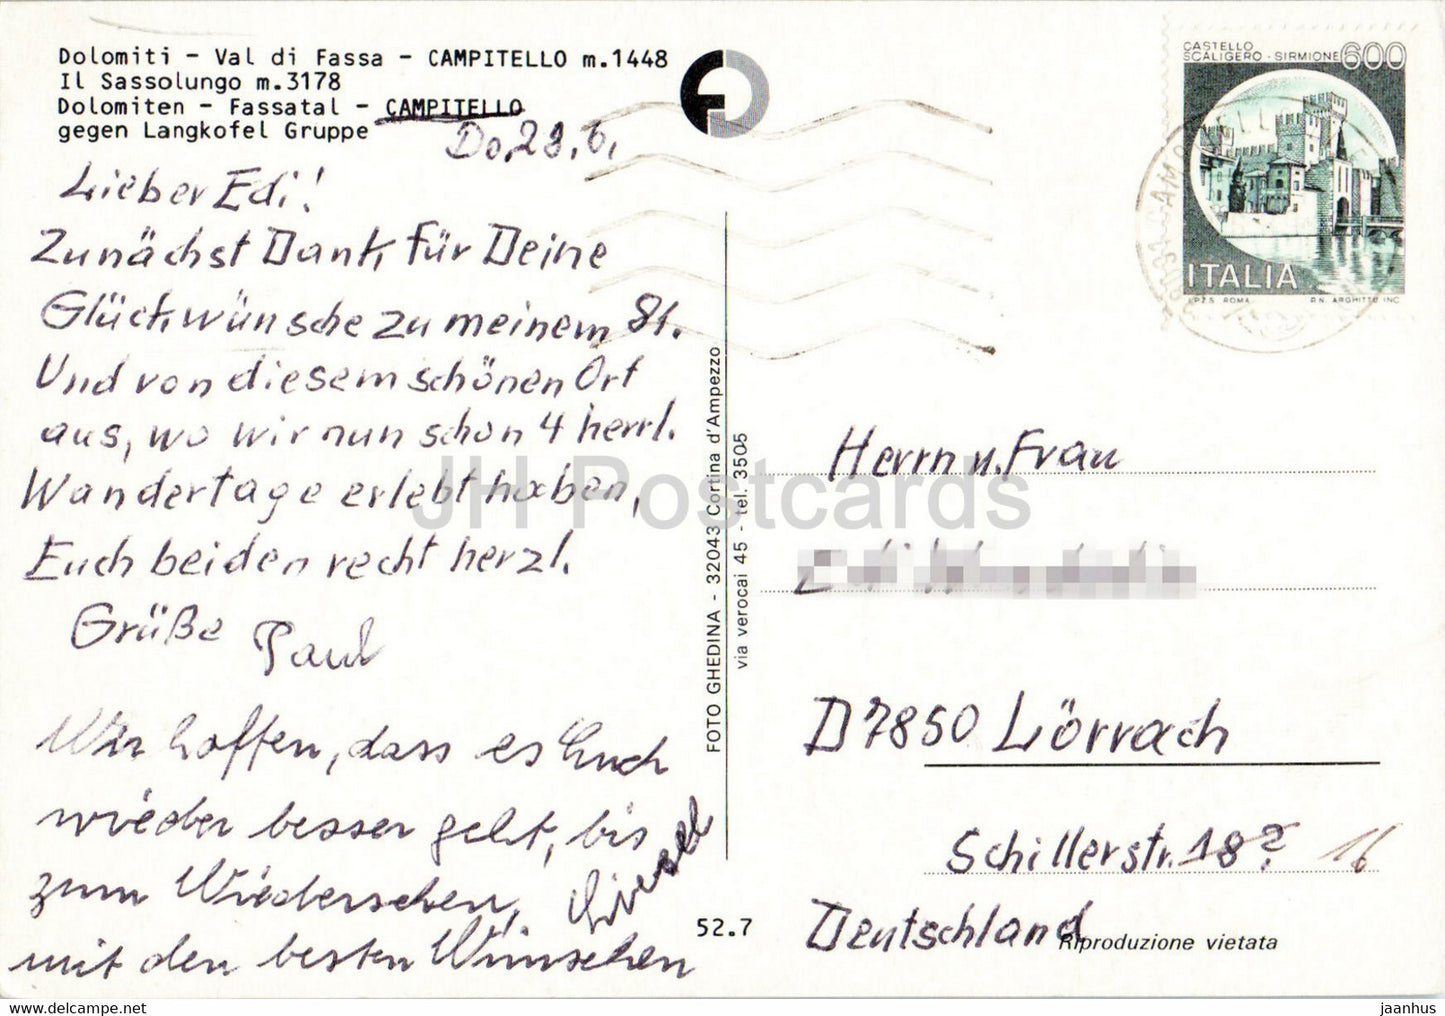 Dolomiti - Val di Fassa - CAMPITELLO m.1448
Il Sassolungo m.3178
Dolomiten - Fassatal - CAMPITELLO
gegen Langkofel Gruppe
Do. 29.6.
Lieber Edi!
Zunächst Dank für Deine
Glückwünsche zu meinem 81.
Und von diesem schönen Ort
aus, wo wir nun schon 4 herrl.
Wandertage erlebt haben,
Euch beiden recht herzl.
Grüße Paul
Wir hoffen, dass es Euch
wieder besser geht, bis
zum Wiedersehen,
mit den besten Wünschen
Liesel
FOTO GHEDINA - 32043 Cortina d'Ampezzo
via verocai 45 - tel. 3505
52.7
CASTELLO
SCALIGERO - SIRMIONE 600
ITALIA
I.P.Z.S. ROMA P.N. ARGHITTU INC.
Herrn u. Frau
D7850 Lörrach
Schillerstr. 18? 16
Deutschland
Riproduzione vietata
JH Postcards
https://www.delcampe.net
jaanhus